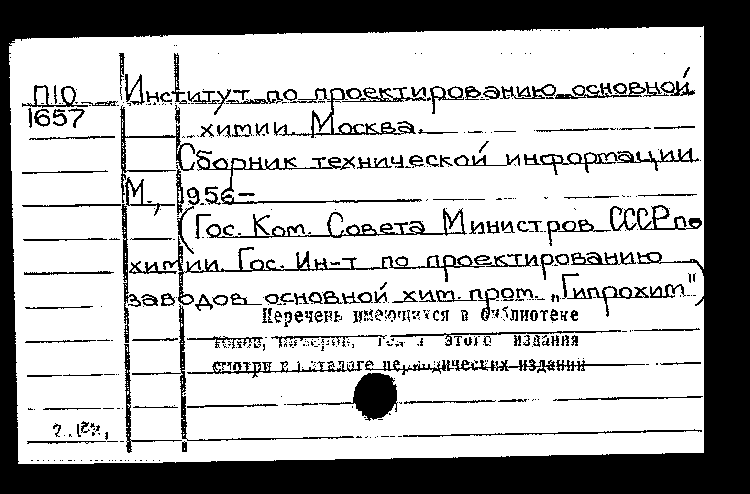 П10 Институт по проектированию основной
1657 химии. Москва.
Сборник технической информации.
М., 1956-
(Гос. Ком. Совета Министров СССР по
химии. Гос. Ин-т по проектированию
заводов основной хим. пром. „Гипрохим")
Перечень имеющихся в библиотеке
томов, номеров, этого издания
смотри в каталоге периодических изданий